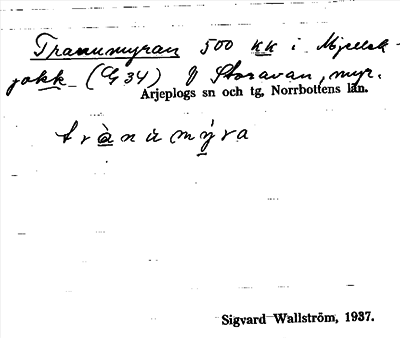 Tranumyran 500 kk i Mjellek-
jokk (G 34) Ö Storavan, myr.
Arjeplogs sn och tg, Norrbottens län.
trànùmýra
Sigvard Wallström, 1937.